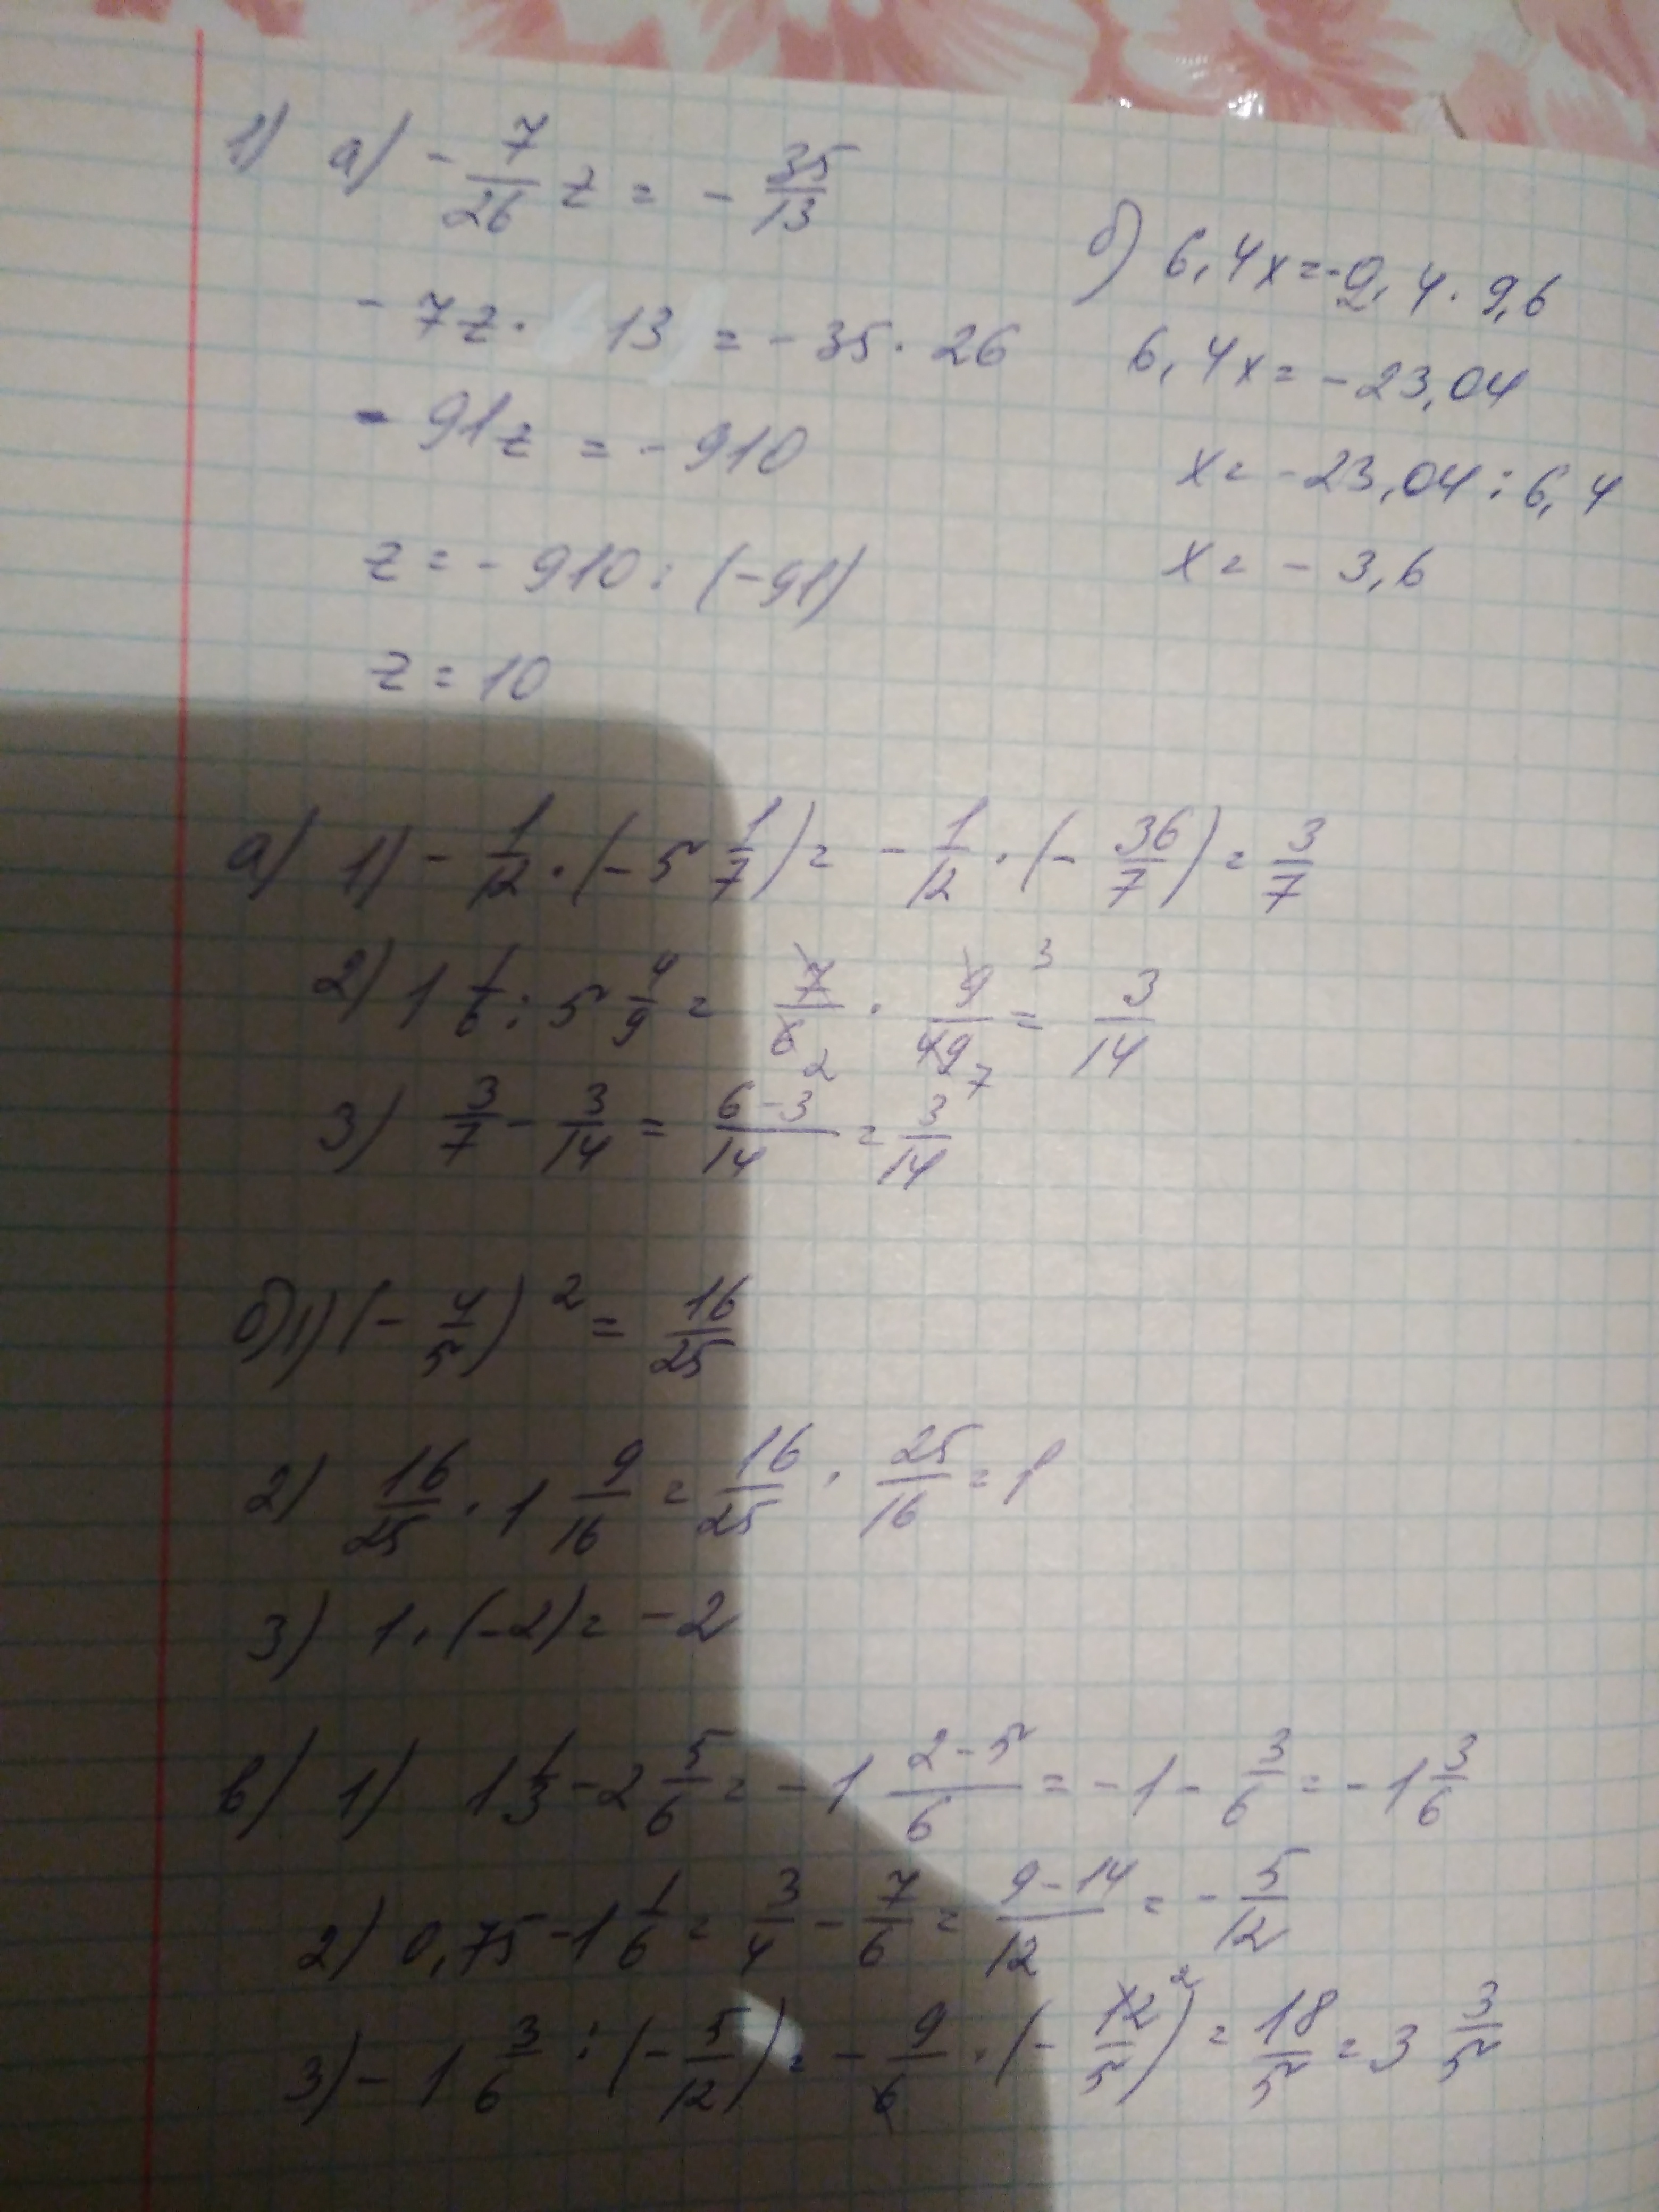 1) а) - 7/26 z = - 35/13
- 7z · 13 = - 35 · 26
- 91z = - 910
z = - 910 : (-91)
z = 10
б) 6,4x = -2,4 · 9,6
6,4x = -23,04
x = -23,04 : 6,4
x = - 3,6
а) 1) - 1/12 · (- 5 1/7) = - 1/12 · (- 36/7) = 3/7
2) 1 1/6 : 5 4/9 = 7/6 2 · 9/49 3 7 = 3/14
3) 3/7 - 3/14 = 6-3/14 = 3/14
б) 1) (- 4/5)² = 16/25
2) 16/25 · 1 9/16 = 16/25 · 25/16 = 1
3) 1 · (-2) = -2
в) 1) 1 1/3 - 2 5/6 = -1 2-5/6 = -1 - 3/6 = -1 3/6
2) 0,75 - 1 1/6 = 3/4 - 7/6 = 9-14/12 = - 5/12
3) - 1 3/6 : (- 5/12) = - 9/6 · (- 12/5) 2 = 18/5 = 3 3/5